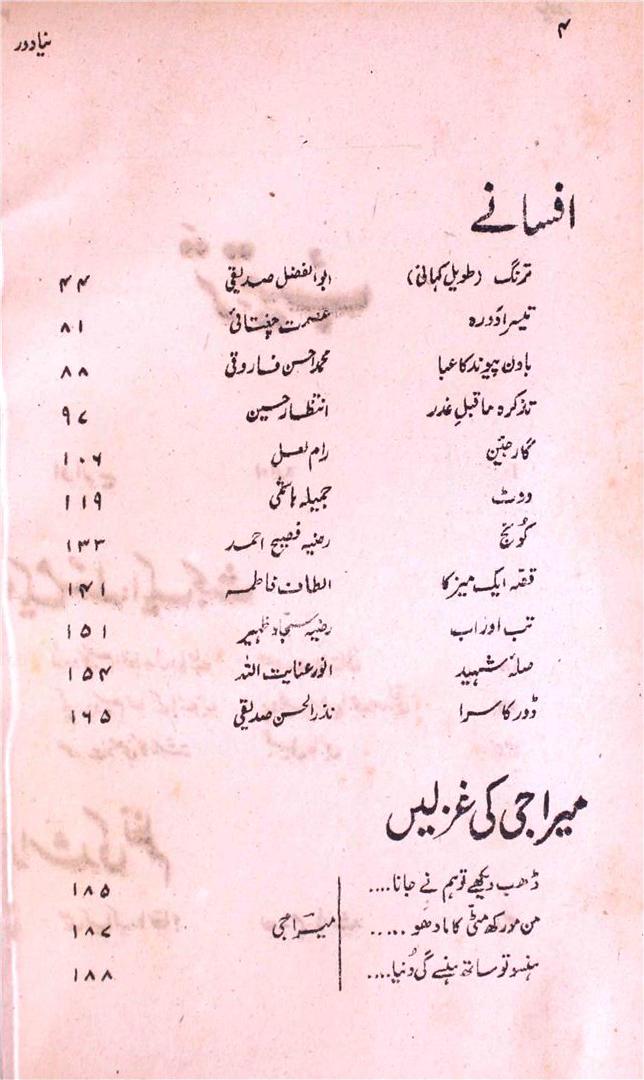 ۴
نیا دور
افسانے
ترنگ (طویل کہانی) ابوالفضل صدیقی ۴۴
تیسرا دورہ عصمت چغتائی ۸۱
باون پیوند کا عبا محمد احسن فاروقی ۸۸
تذکرہ ماقبل غدر انتظار حسین ۹۷
گارجین رام لعل ۱۰۶
ووٹ جمیلہ ہاشمی ۱۱۹
گونج رضیہ فصیح احمد ۱۳۳
قصّہ ایک میز کا الطاف فاطمہ ۱۴۱
تب اور اب رضیہ سجّاد ظہیر ۱۵۱
صلۂ شہید انور عنایت اللہ ۱۵۴
ڈور کا سرا نذر الحسن صدیقی ۱۶۵
میرا جی کی غزلیں
ڈھب دیکھے تو ہم نے جانا.... ۱۸۵
من مورکھ مٹّی کا مادھو ..... میرا جی ۱۸۷
ہنسو تو ساتھ ہنسے گی دُنیا.... ۱۸۸